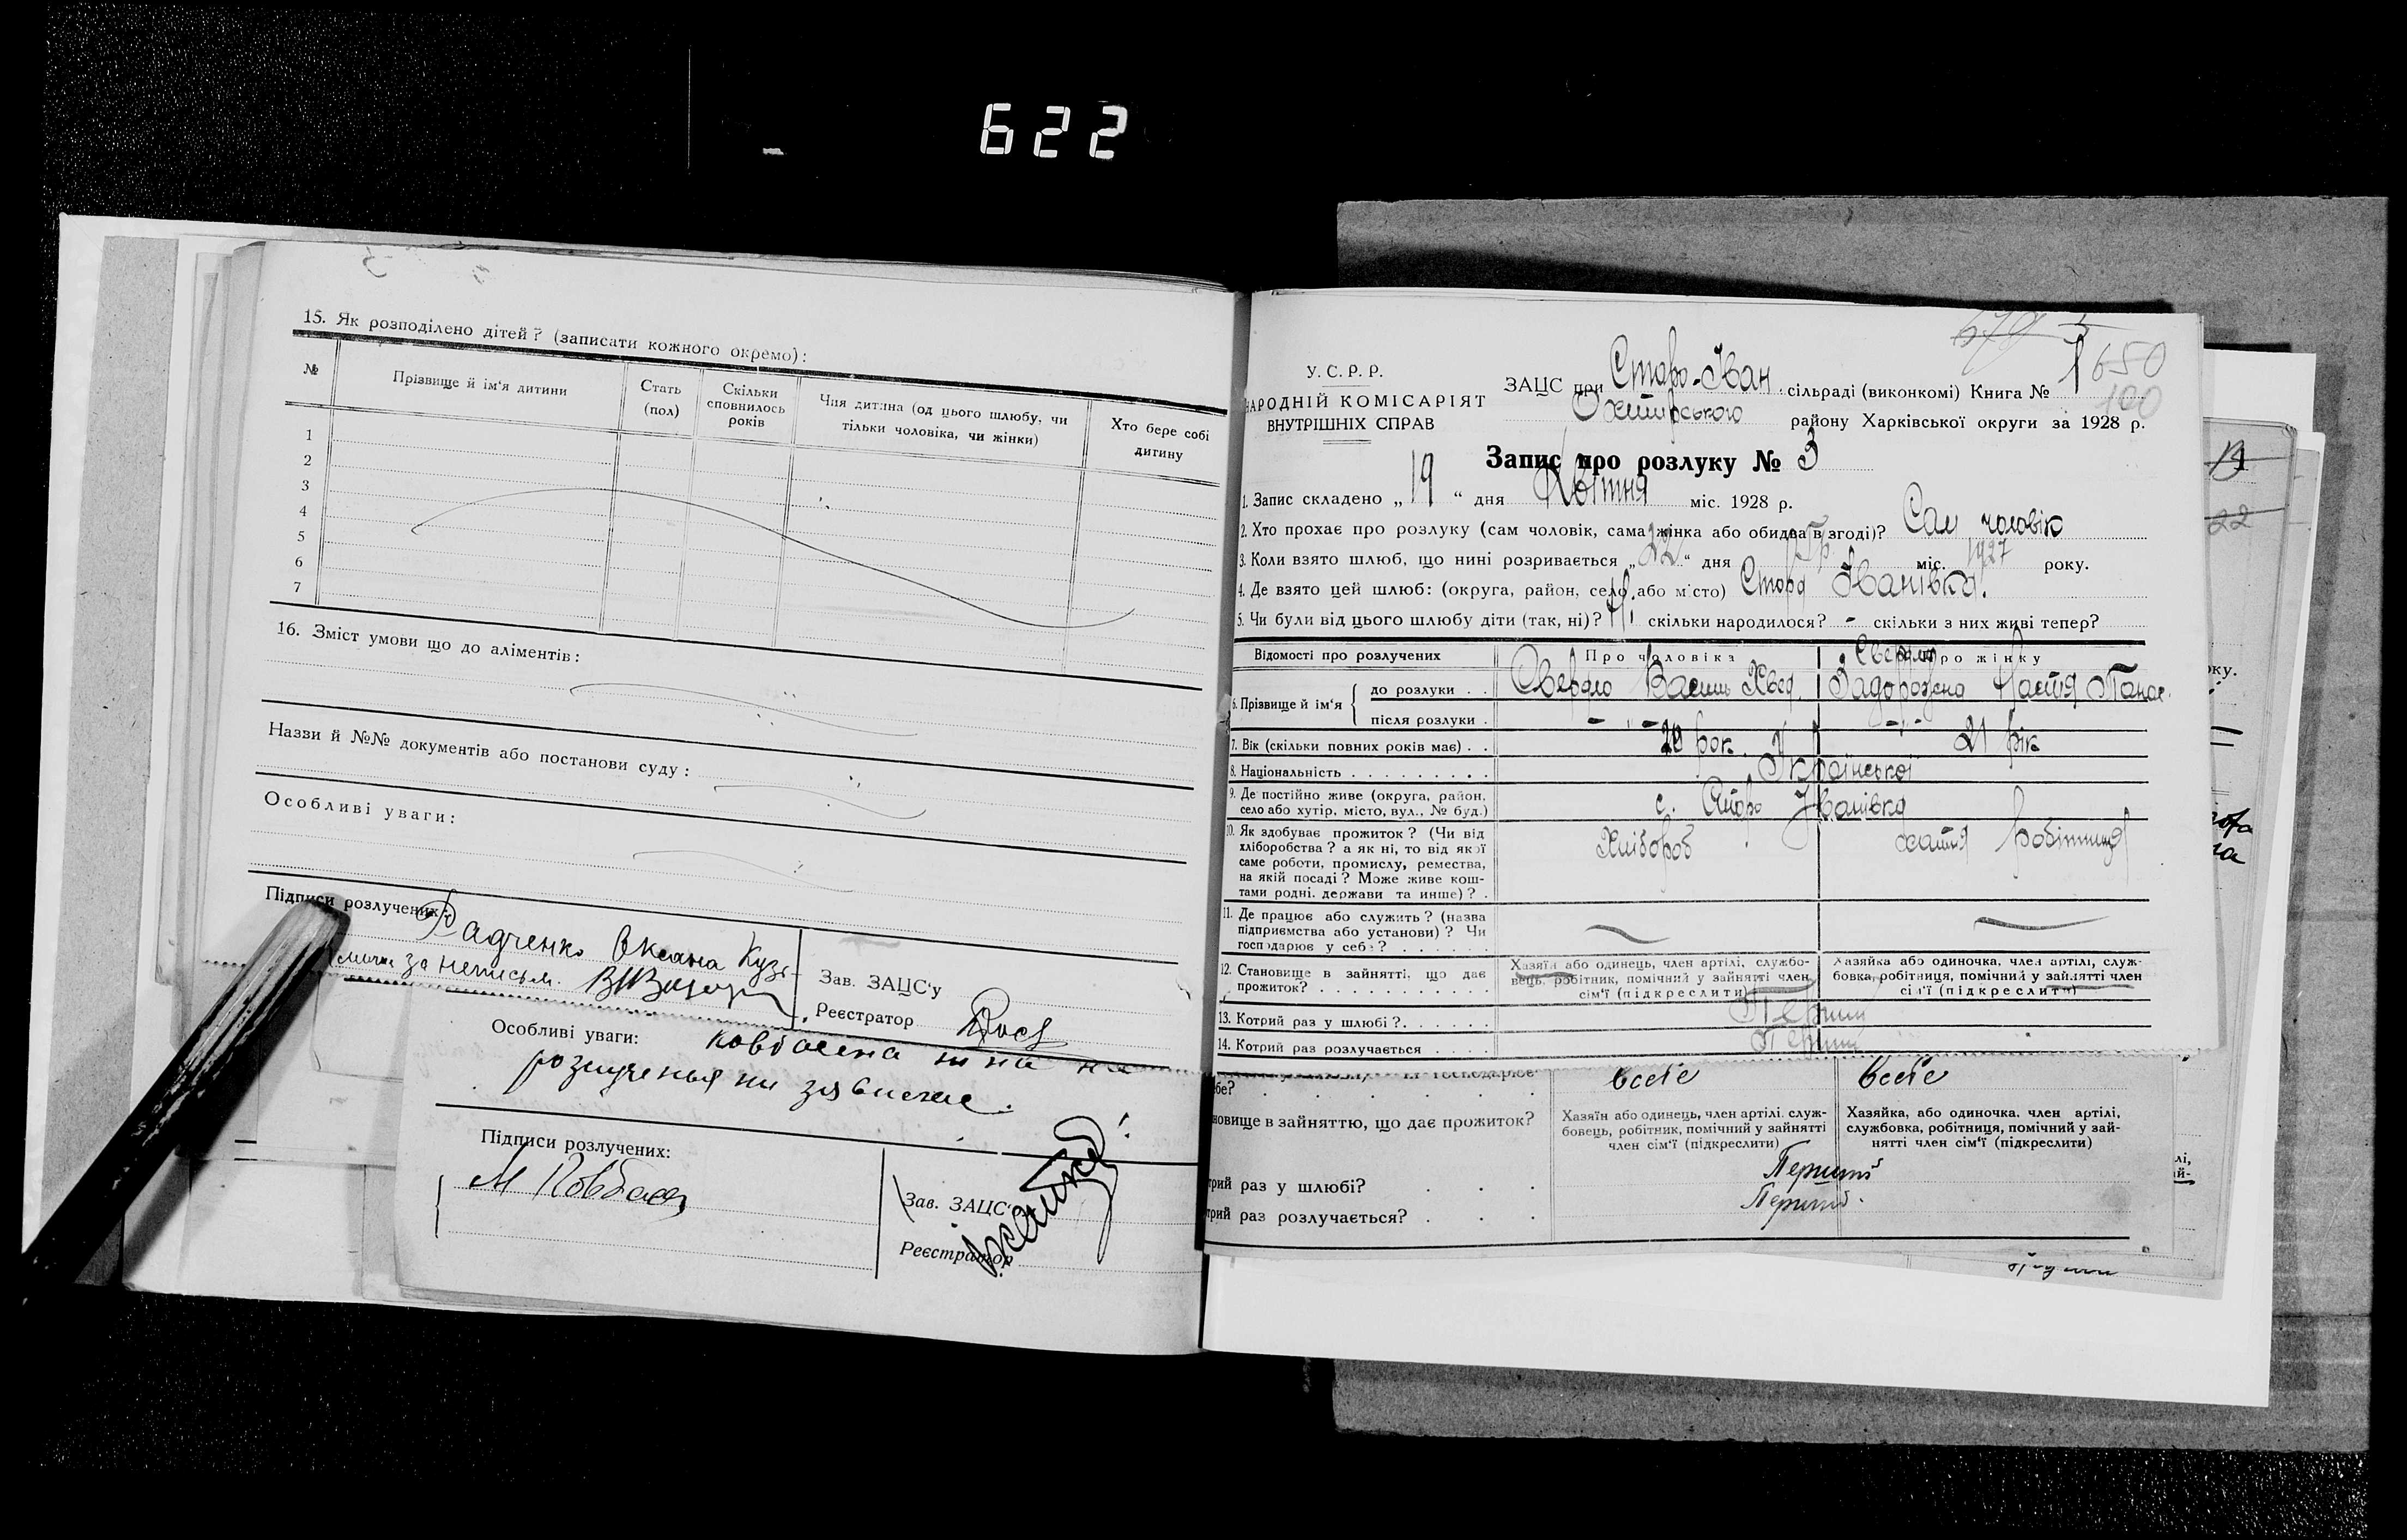 622
15. Як розподілено дітей? (записати кожного окремо):
№
Прізвище й ім'я дитини
Стать (пол)
Скільки сповнилось років
Чия дитина (од цього шлюбу, чи тільки чоловіка, чи жінки)
Хто бере собі дитину
1
2
3
4
5
6
7
16. Зміст умови що до аліментів:
Назви й №№ документів або постанови суду:
Особливі уваги:
Підписи розлучених:
Радченко Оксана Кузь
за неписьм.
Зав. ЗАЦС'у
Реєстратор
Особливі уваги:
розлучення ни зявилась.
Підписи розлучених:
М Ковбаса
Зав. ЗАЦС'у
Реєстратор
679
650
100
У.С.Р.Р.
НАРОДНІЙ КОМІСАРІЯТ
ВНУТРІШНІХ СПРАВ
ЗАЦС при Старо-Іван. сільраді (виконкомі) Книга № 1
Охтирського району Харківської округи за 1928 р.
Запис про розлуку № 3
1. Запис складено „19“ дня Квітня міс. 1928 р.
2. Хто прохає про розлуку (сам чоловік, сама жінка або обидва в згоді)? Сам чоловік
3. Коли взято шлюб, що нині розривається „22“ дня міс. 1927 року.
4. Де взято цей шлюб: (округа, район, село, або місто) Стара Іванівка.
5. Чи були від цього шлюбу діти (так, ні)? Ні. скільки народилося? - скільки з них живі тепер?
Відомості про розлучених
Про чоловіка
Про жінку
6. Прізвище й ім'я
до розлуки . .
Свергло
Свергло Василь Хвед.
Задорожна Настя Панас.
після розлуки .
- " -
- " -
7. Вік (скільки повних років має) . .
20 рок.
21 рік
8. Національність . . . . . . . . .
Української
9. Де постійно живе (округа, район, село або хутір, місто, вул., № буд.)
с. Стара Іванівка
10. Як здобуває прожиток? (Чи від хліборобства? а як ні, то від якої саме роботи, промислу, ремества, на якій посаді? Може живе коштами родні, держави та инше)? .
Хлібороб
хатня робітниця
11. Де працює або служить? (назва підприємства або установи)? Чи господарює у себе? . . . . . .
12. Становище в зайнятті, що дає прожиток? . . . . . . . . . . .
Хазяїн або одинець, член артілі, службовець, робітник, помічний у зайнятті член сім'ї (підкреслити)
Хазяйка або одиночка, член артілі, службовка, робітниця, помічний у зайнятті член сім'ї (підкреслити)
13. Котрий раз у шлюбі? . . . . . .
Перший
14. Котрий раз розлучається . . . .
Перший
бе?
всебе
всебе
новище в зайняттю, що дає прожиток?
Хазяїн або одинець, член артілі, службовець, робітник, помічний у зайнятті член сім'ї (підкреслити)
Хазяйка, або одиночка, член артілі, службовка, робітниця, помічний у зайнятті член сім'ї (підкреслити)
трий раз у шлюбі? . . .
Перший
трий раз розлучається? . . .
Перший.
22
оку.